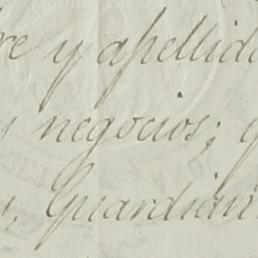 re y apellido
y negocios; q
y, Guardian